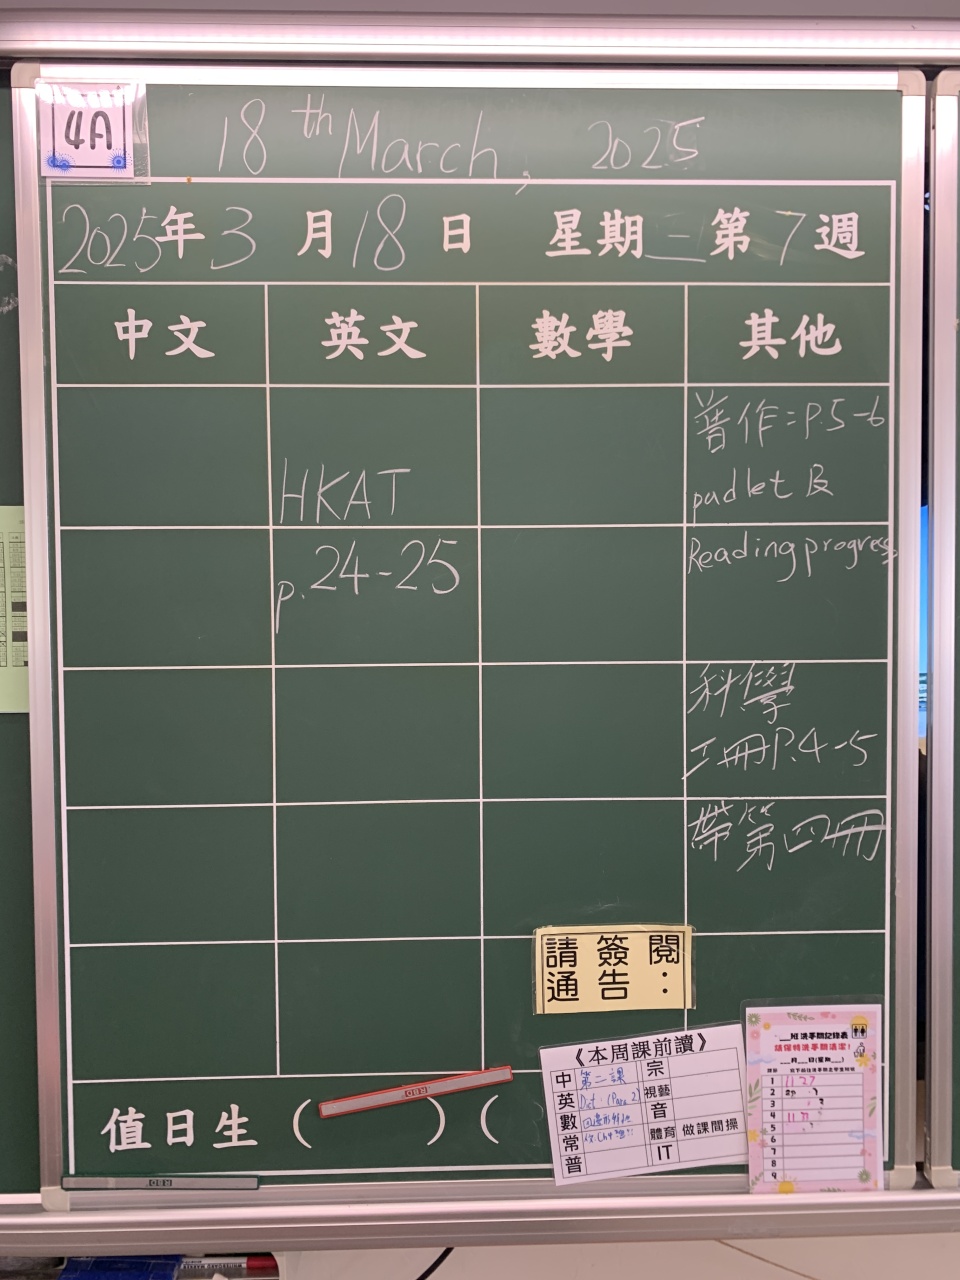 4A
18th March, 2025
2025年3月18日 星期二第7週
中文 英文 數學 其他
普作:P.5-6
HKAT
padlet 及
p.24-25
Reading progress
科學
三冊P.4-5
帶第四冊
請簽閱
通告：
《本周課前讀》
中 第二課 宗
英 Dict. (Para 2) 視藝
數 音
常 體育 做課間操
普 IT
值日生 ( ) (
班洗手間記錄表
請保持洗手間清潔!
月 日(星期 )
1 11:27
2
3
4
5
6
7
8
9